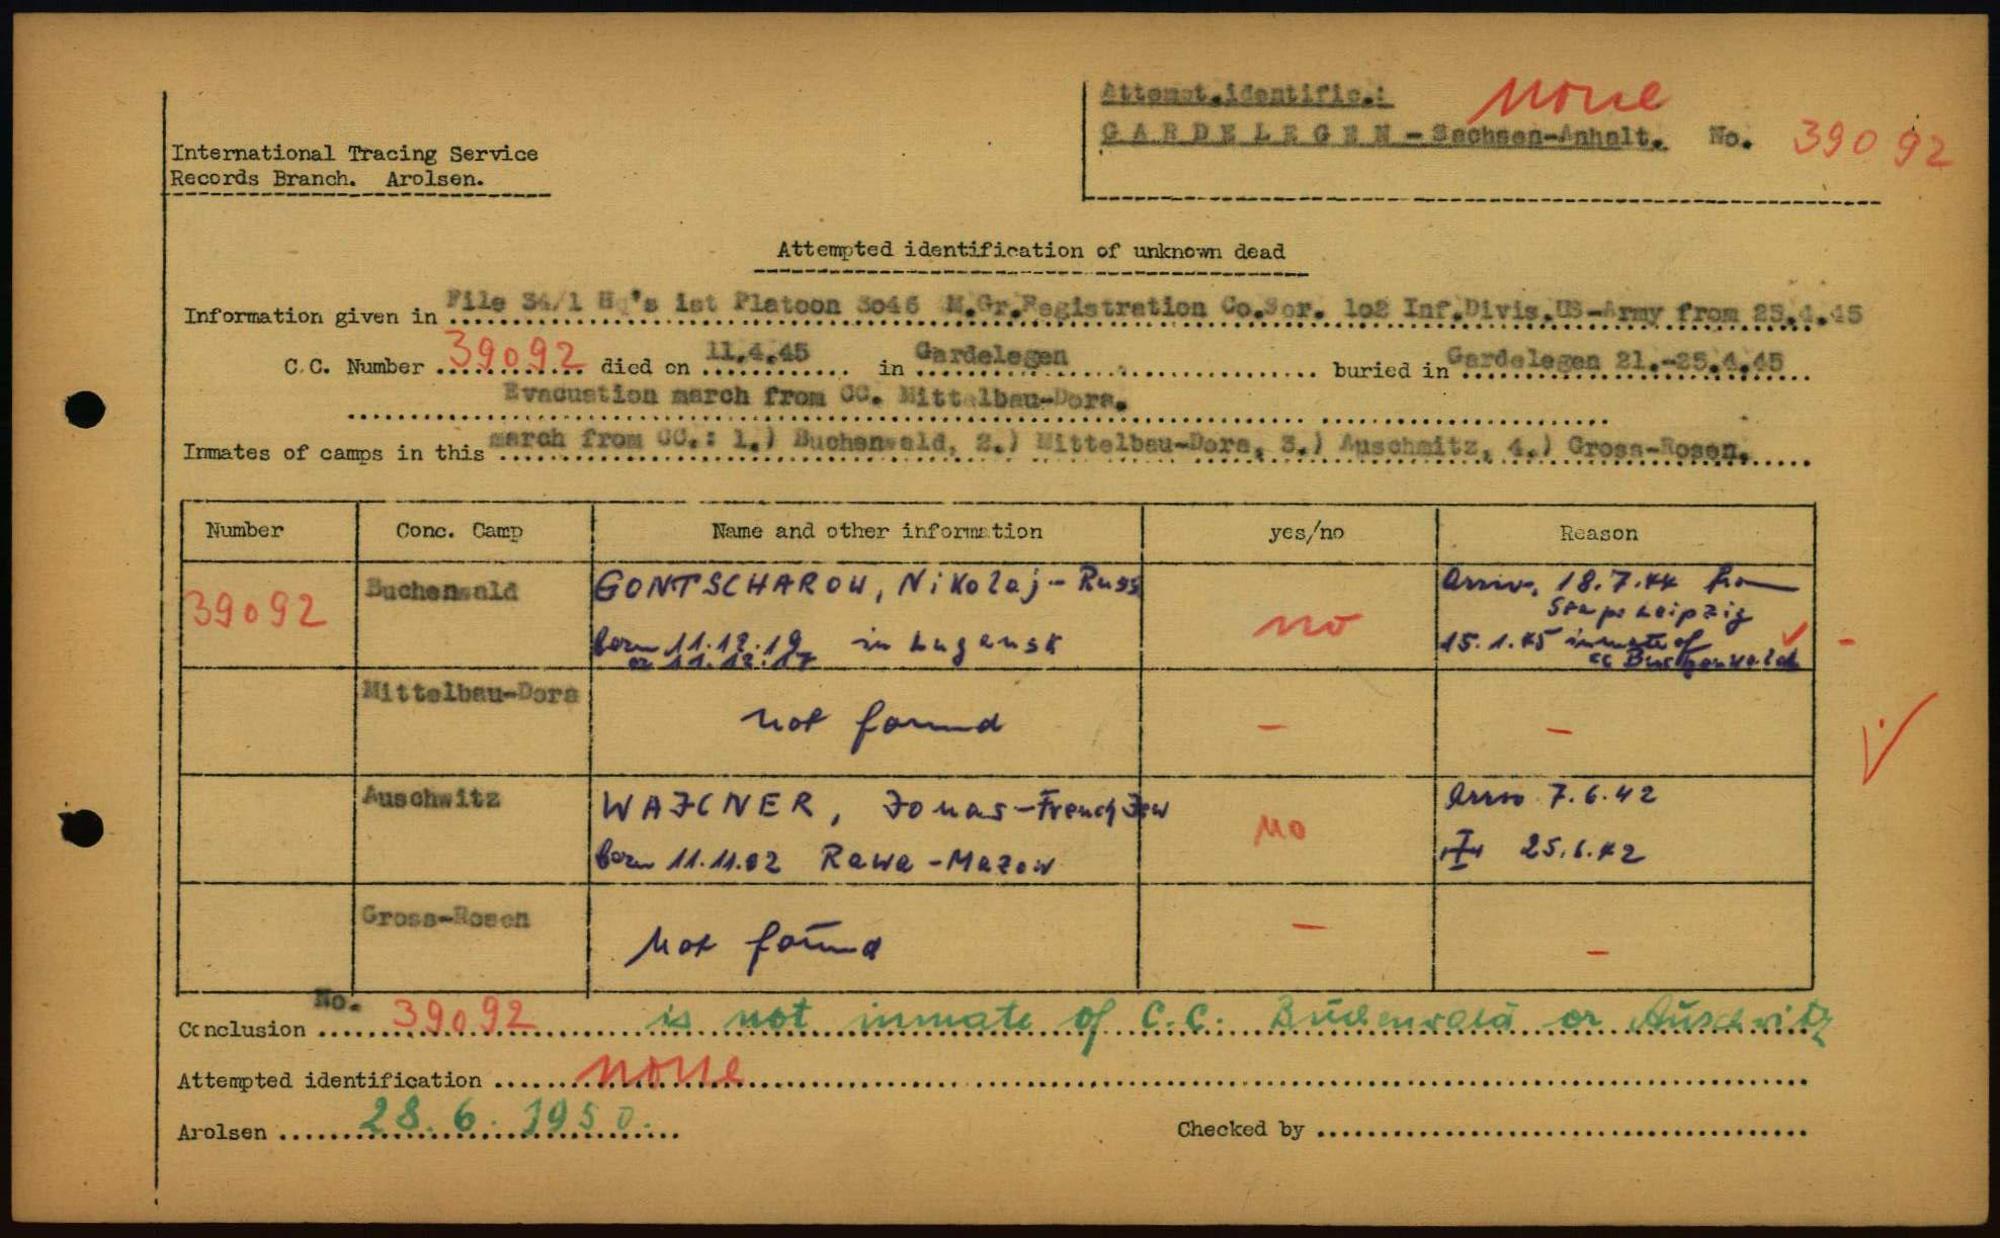 Attempt.identific.: none
GARDELEGEN - Sachsen-Anhalt. No. 39092
International Tracing Service
Records Branch. Arolsen.
Attempted identification of unknown dead
Information given in File 34/1 Hq's 1st Platoon 3046 M.Gr.Registration Co.Ser. 102 Inf.Divis.US-Army from 25.4.45
C.C. Number 39092 died on 11.4.45 in Gardelegen buried in Gardelegen 21.-25.4.45
Evacuation march from CC. Mittelbau-Dora.
Inmates of camps in this march from CC.: 1.) Buchenwald, 2.) Mittelbau-Dora, 3.) Auschwitz, 4.) Gross-Rosen.
Number Conc. Camp Name and other information yes/no Reason
39092 Buchenwald GONTSCHAROW, Nikolaj - Russ no Arriv. 18.7.44 from
Stapo Leipzig
born 11.12.19 in Lugansk 15.1.45 inmate of
or 11.12.17 cc Buchenwald
Mittelbau-Dora not found - -
Auschwitz WAJCNER, Jonas - French Jew no Arriv 7.6.42
born 11.11.02 Rawa-Mazow 25.6.42
Gross-Rosen not found - -
Conclusion No. 39092 is not inmate of C.C. Buchenwald or Auschwitz
Attempted identification none
Arolsen 28.6.1950. Checked by